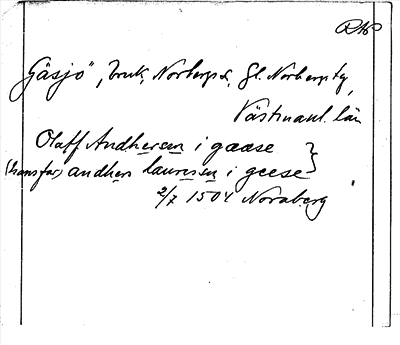 RAP
Gåsjö", bruk, Norbergs s., Gl. Norbergs bg,
Västmanl. län
Olaff Andhersen i gaase
(hans far) andhers laurensen i geese
2/7 1504 Noraberg